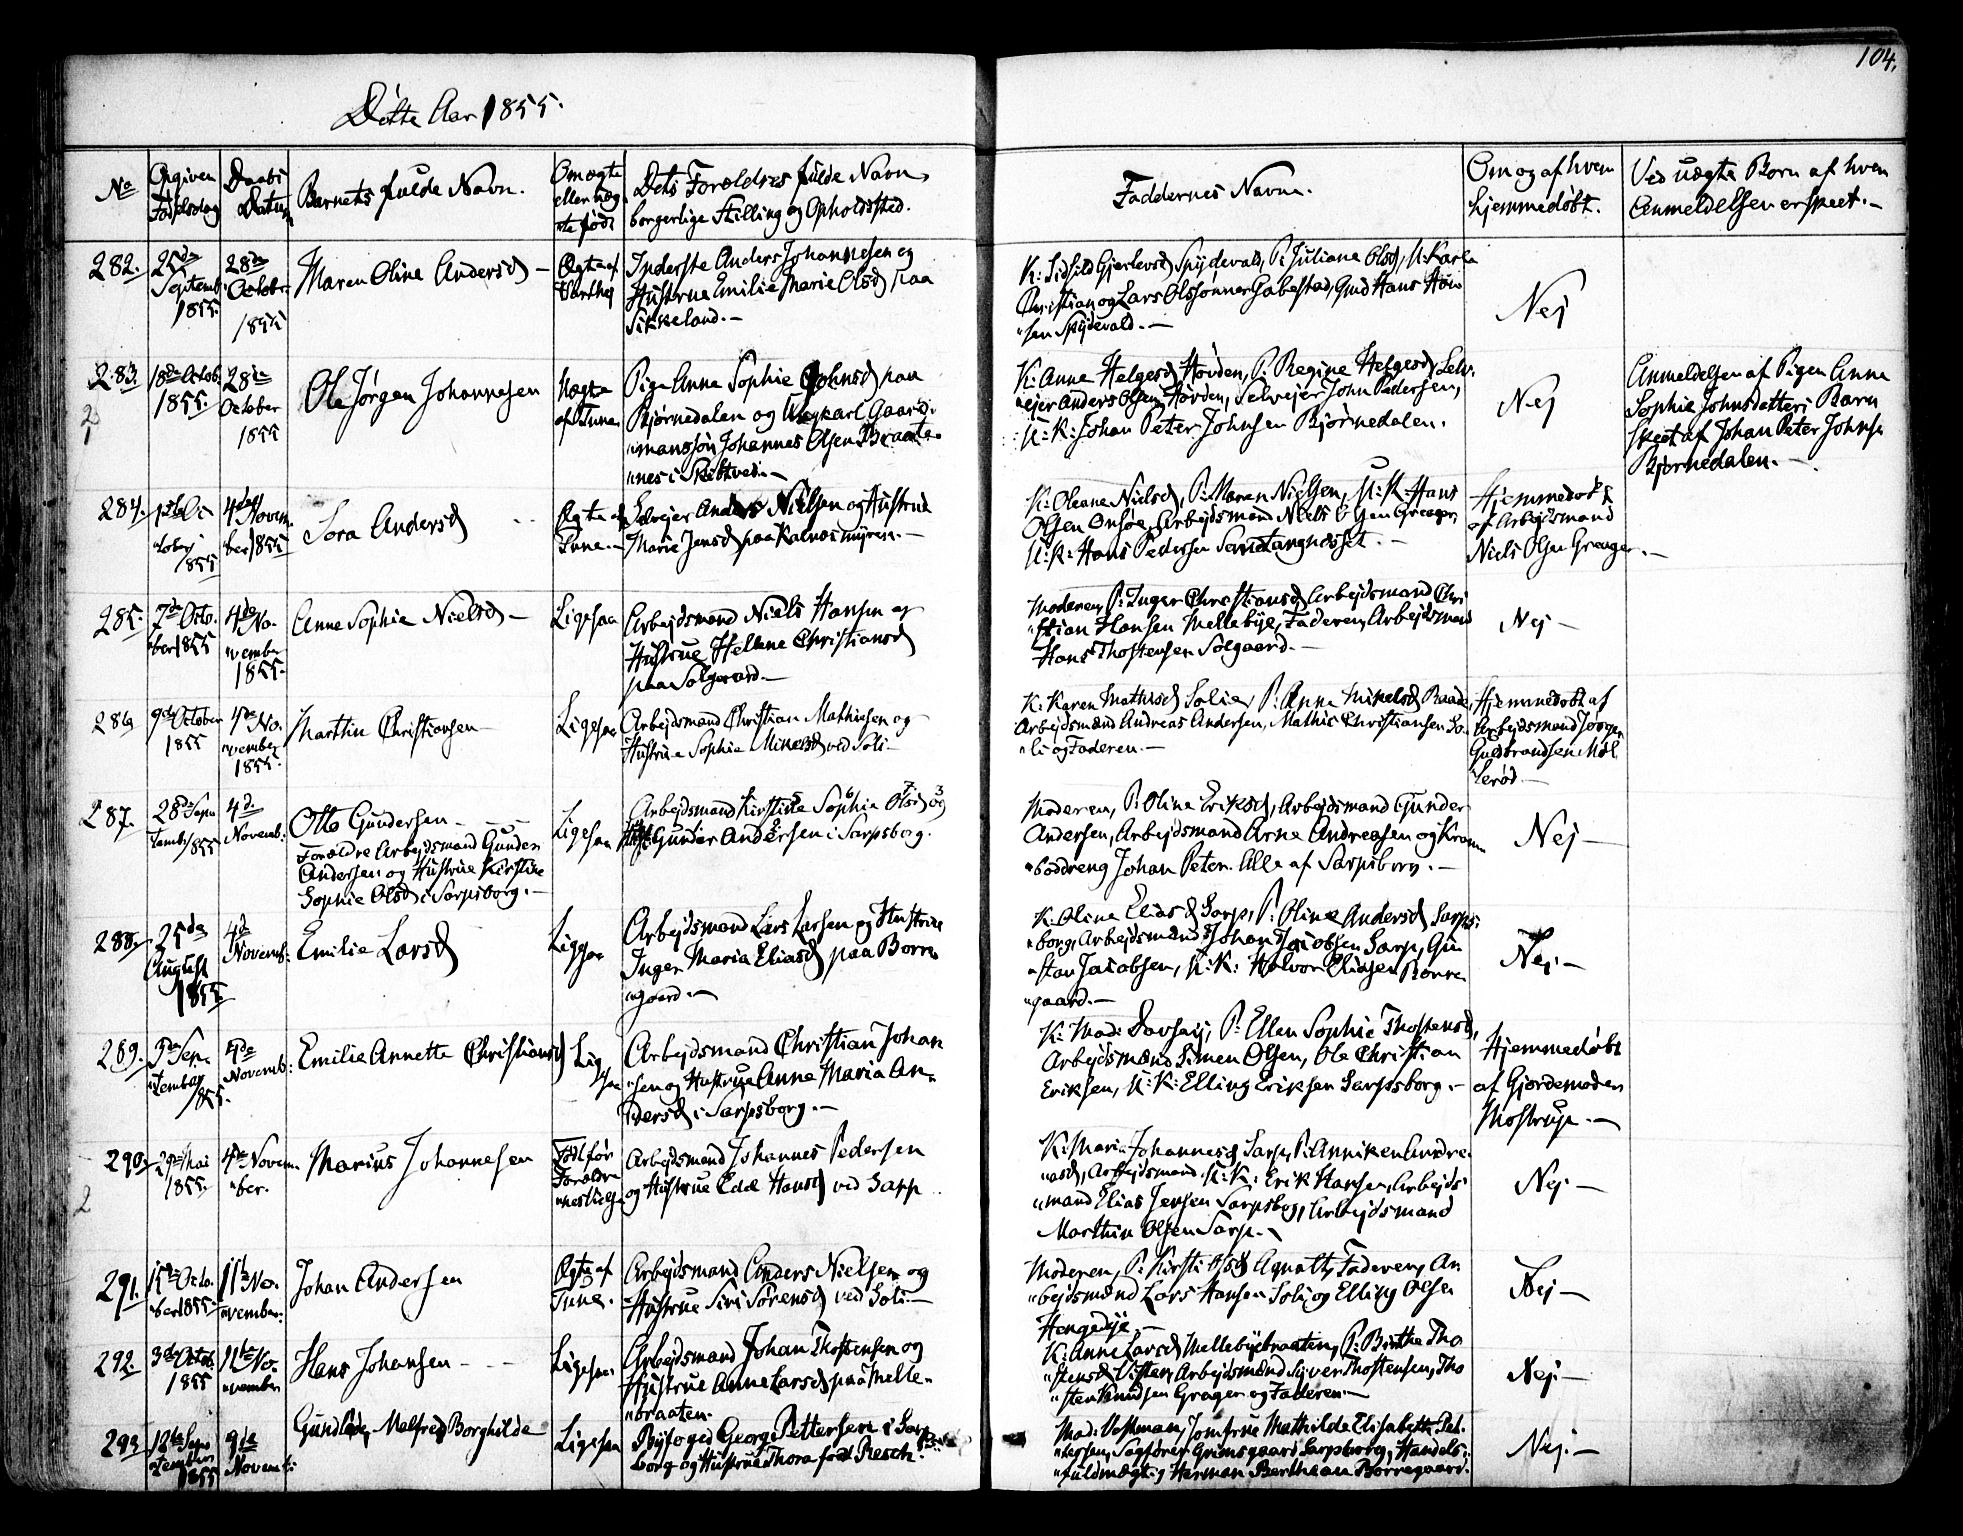 104.
Døbte Aar 1855.
No
Opgiven
Fødselsdag
Daabs
Datum
Barnets fulde Navn.
Om ægte
eller uæg
te født
Dets Forældres fulde Navn,
borgerlige Stilling og Opholdssted.
Faddernes Navne.
Om og af hvem
hjemmedøbt.
Ved uægte Børn af hvem
Anmeldelsen er skeet.-
282.
25de
Septemb
1855.
28de
October
1855
Maren Oline Andersd -
Ægte af
Inderste Anders Johannesen og
Hustrue Emilie Marie Olsd paa
Sikkeland.-
Spydevold, P: Juliane Olsd, U: Karle
Christian og Lars Olssønner Gabestad, Gmd Hans Han
"sen Spydevold.-
Nej
283.
18de Octob.
1855.
28de
October
1855
Ole Jørgen Johannesen
Uægte
af Tune
Pige Anna Sophie Johnsd paa
Bjørnedalen og Ungkarl Gaard
"manssøn Johannes Olsen Braate
"nes i Skibtved.-
K: Anne Helgesd Hovden, P: Regine Helgesd, Selv
"ejer Anders Olsen Hovden, Selvejer John Pedersen,
U:K: Johan Peter Johnsen Bjørnedalen.
Nej
Anmeldelsen af Pigen Anna
Sophie Johnsdatters Barn
skeet af Johan Peter Johnse
Bjørnedalen.-
284.
1ste Oc
"tober
1855
4de Novem
ber 1855
Andersd
Ægte af
Tune.-
Selvejer Anders Nielsen og Hustrue
Marie Jensd paa Kalnæsmyren.-
K: Oleane Nielsd, P: Maren Nielsen, U:K: Hans
Olsen Onsøe, Arbejdsmand Niels Olsen Greager
U:K: Hans Pedersen
Hjemmedøbt
af Arbejdsmand
Niels Olsen Greager.-
285.
7de Octo.
"ber 1855
4de No.
"vember
1855.
Anne Sophie Nielsd -
Ligesaa
Arbejdsmand Niels Hansen og
Hustrue Helene Christiansd
paa Solgaard.-
Moderen, P: Inger Christiansd, Arbejdsmand Chri
"stian Hansen Mellebye, Faderen, Arbejdsmand
Hans Thostensen Solgaard.-
Nej -
286
9de October
1855
4de No.
"vember
1855.
Marthin Christiansen
Ligesaa
Arbejdsmand Christian Mathisen og
Hustrue Sophie Mikelsd ved Soli -
K: Karen Mathisd Solie, P: Anne Mikelsd Raade,
Arbejdsmænd Andreas Andersen, Mathis Christiansen So.
"li og Faderen.-
Hjemmedøbt af
Arbejdsmand Jørgen
Guldbrandsen Møl
lerød -
287.
28de Sep
tember 1855
4de
Novemb:
Otto Gundersen -
Forældre Arbejdsmand Gunder
Andersen og Hustrue Kirstine
Sophie Olsd i Sarpsborg.-
Ligesaa
Arbejdsmand Kirstine Sophie Olsd og
Gunder Andersen i Sarpsborg.
Moderen, P: Oline Eriksd, Arbejdsmand Gunder
Andersen, Arbejdsmand Arne Andreasen og Kram
"boddreng Johan Peter. Alle af Sarpsborg.-
Nej -
288.
25de
August
1855
4de
Novemb:
Emilie Larsd
Ligesaa
Arbejdsmand Lars Larsen og Hustrue
Inger Maria Eliasd paa Borre
"gaard.-
K: Oline Eliasd Sarp, P: Oline Andersd Sarps:
"borg, Arbejdsmænd Johan Jacobsen Sarp, Gu
"stav Jacobsen, U:K: Halvor Eliasen Borre
"gaard.-
Nej.-
289.
9de Sep.
"tember
1855.
4de
Novemb:
Emilie Annette Christiansd
Lig
esaa
Arbejdsmand Christian Johan
"sen og Hustrue Anne Maria An,
"dersd i Sarpsborg.-
K: Mad: P: Ellen Sophie Thostensd,
Arbejdsmænd Simen Olsen, Ole Christian
Eriksen, U:K: Elling Eriksen Sarpsborg.-
Hjemmedøbt
af Gjordemoden
Mostrup.-
290.
29de Mai
1855.
4de Novem
"ber.
Marius Johannesen
Født før
Forældre
Arbejdsmand Johannes Pedersen
og Hustrue Edle Hansd ved Sarp
K: Maria Johannesd Sarp, P: Anniken Andre
"asd, Arbejdsmand. U:K: Erik Hansen, Arbejds
"mand Elias Jensen Sarpsborg, Arbejdsmand
Marthin Olsen Sarp.-
Nej.-
291.
15de Octo
"ber 1855
11te No.
"vember:
Johan Andersen
Ægte af
Tune.
Arbejdsmand Anders Nielsen og
Hustrue Siri Sørensd ved Soli.-
Moderen, P: Kirsti Olsd Agnalt, Faderen, Ar
"bejdsmænd Lars Hansen Soli og Elling Olsen
Hengedye.-
Nej -
292.
3de Octob.
1855
11te No.
"vember
Hans Johansen - -
Ligesaa
Arbejdsmand Johan Thostensen og
Hustrue Anne Larsd paa Melle
"braaten.
K: Anne Larsd Mellebyebraaten, P: Birthe Tho
"stensd Visten, Arbejdsmænd Syver Thostensen, Tho
"sten Knudsen Greager og Faderen.-
Nej -
293
12te Sep
tember
1855
9de
Novemb:
Malfred Borghilde
Ligesaa
Byfoged Georg Pettersen i Sarps
borg og Hustrue Thora født Resch.
Mad: Vestman, Jomfrue Mathilde Elisabeth Pet.
"tersen, Sagfører Grimsgaard Sarpsborg, Handels:
"fuldmægtig Herman Berthean Borregaard.
Nej.-